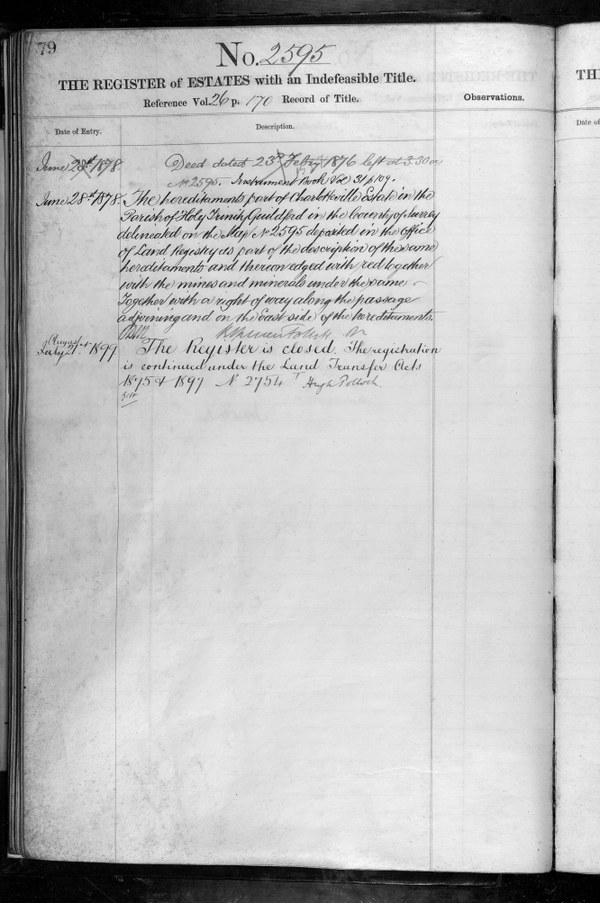 79
No. 2595
THE REGISTER of ESTATES with an Indefeasible Title.
Reference Vol. 26 p. 170 Record of Title.
Observations.
Date of Entry.
Description.
June 28th 1878
Deed dated 23rd Feby 1876 left at 3.30 on
No 2595. Instrument Book Vol 31 p 109.
June 28th 1878.
The hereditaments part of Charlotteville Estate in the
Parish of Holy Trinity Guildford in the County of Surrey
delineated on the Map No 2595 deposited in the Office
of Land Registry as part of the description of the same
hereditaments and thereon edged with red together
with the mines and minerals under the same
Together with a right of way along the passage
adjoining and on the East side of the hereditaments
August
July 21st 1899
The Register is closed. The registration
is continued under the Land Transfer Acts
1875 & 1897 No 2754 Hugh Pollock
TH
Date of